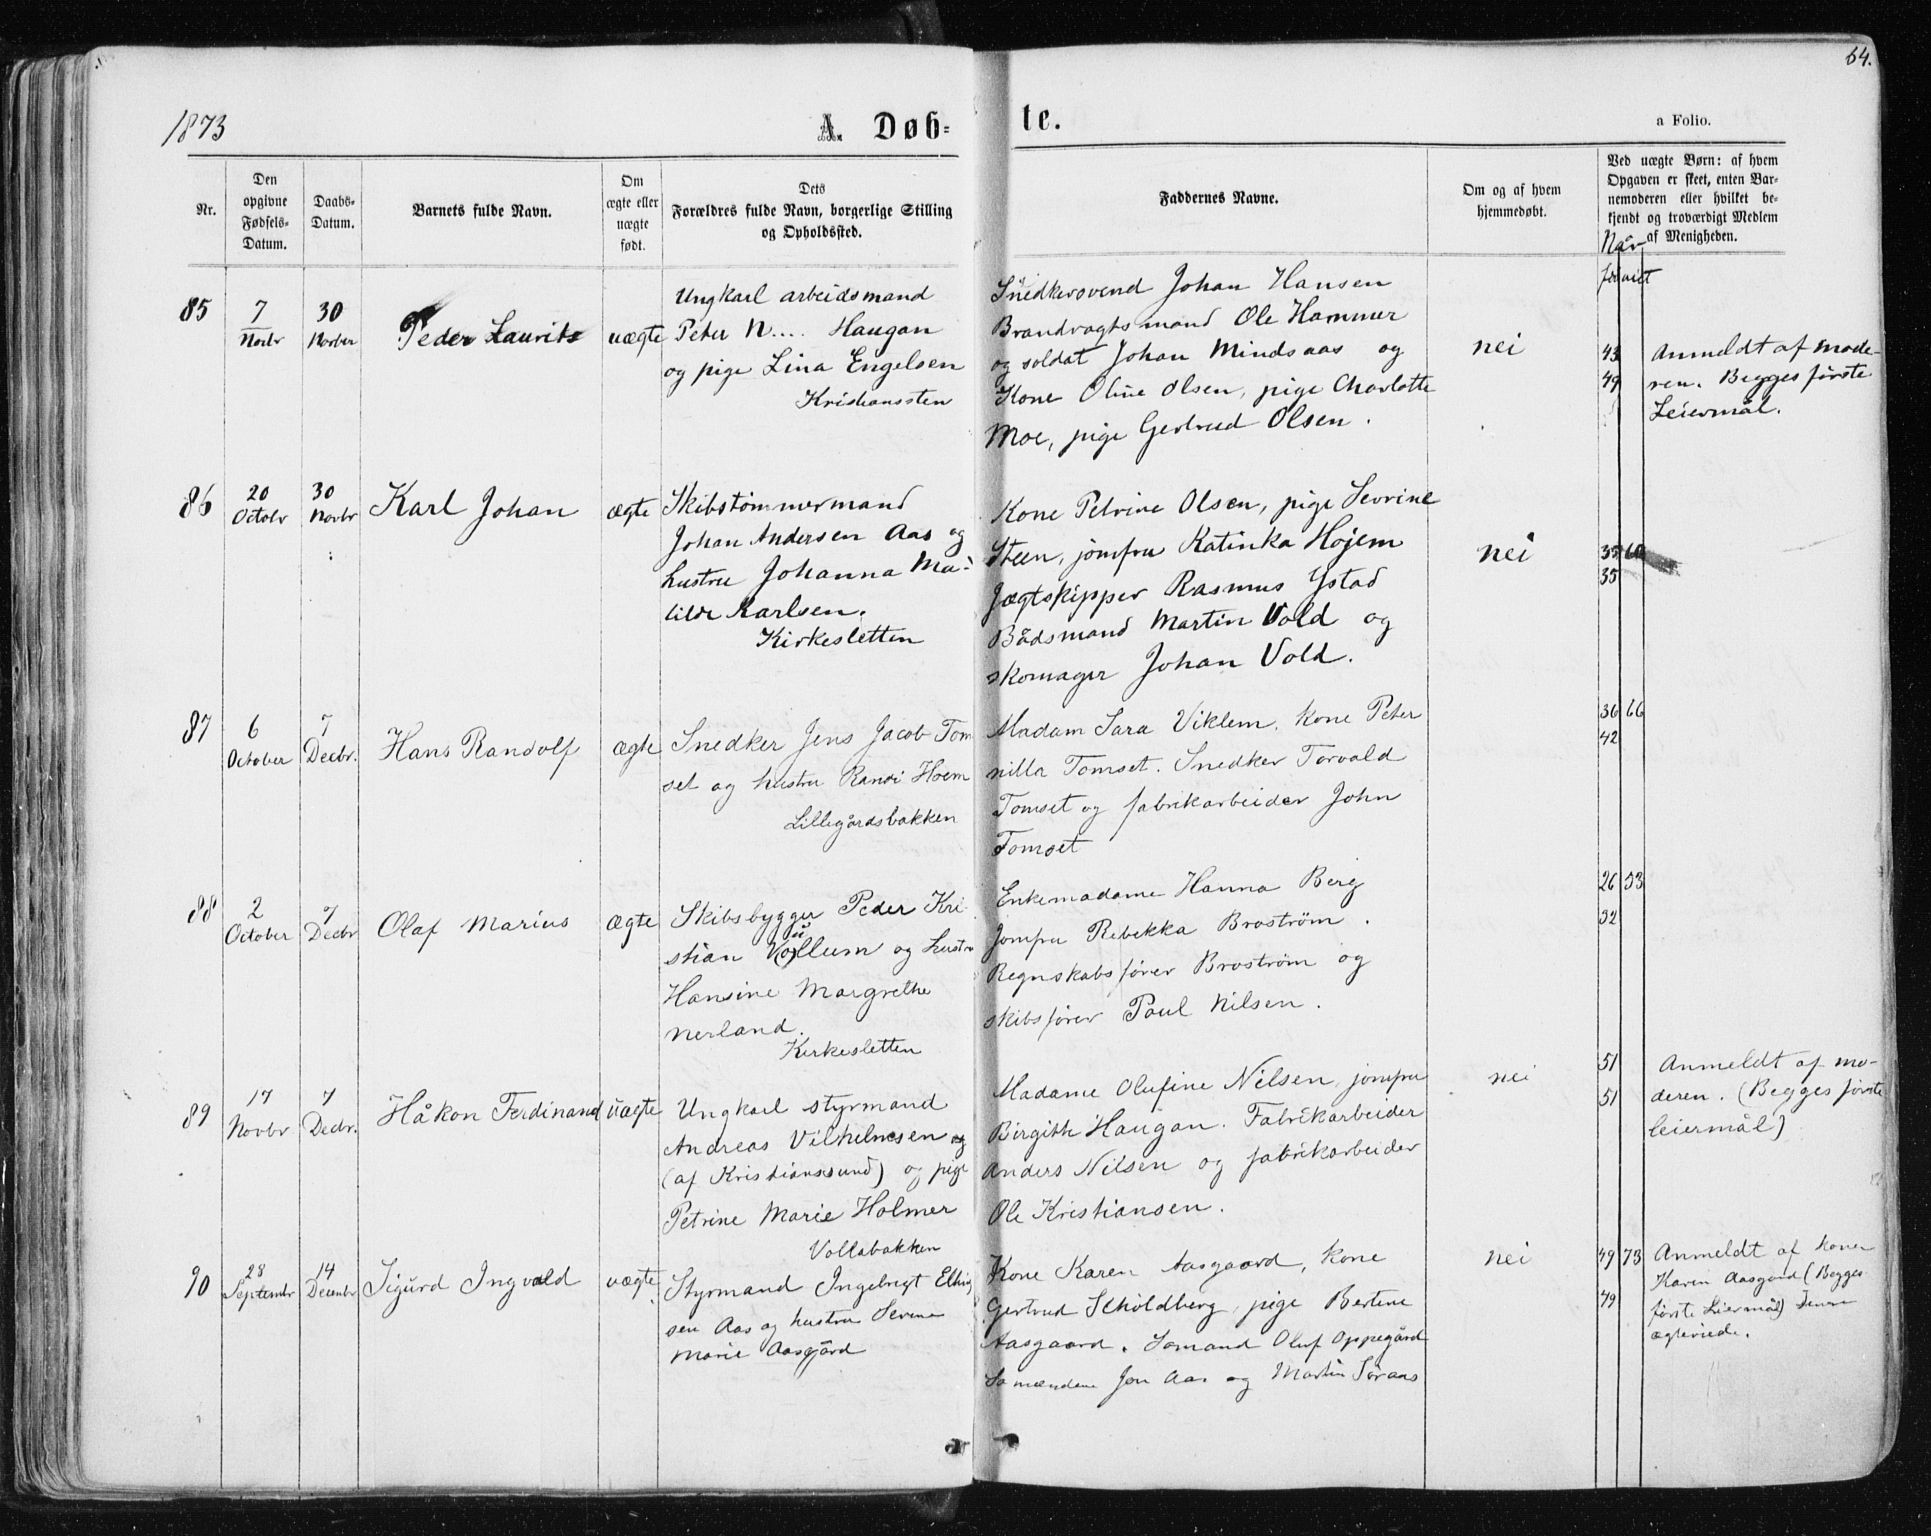 64.
1873
A. Døb-
te.
a Folio.
Nr.
Den
opgivne
Fødsels-
Datum.
Daabs-
Datum.
Barnets fulde Navn.
Om
ægte eller
uægte
født.
Dets
Forældres fulde Navn, borgerlige Stilling
og Opholdssted.
Faddernes Navne.
Om og af hvem
hjemmedøbt.
Ved uægte Børn: af hvem
Opgaven er skeet, enten Bar-
nemoderen eller hvilket be-
kjendt og troværdigt Medlem
af Menigheden.
Når
85
7
Novbr
30
Novber
Peder Laurits
uægte
Ungkarl arbeidsmand
Peter N.... Haugan
og pige Lina Engelsen
Kristianssten
Snedkersvend Johan Hansen
Brandvagtsmand Ole Hammer
og soldat Johan Mindsaas og
Kone Oline Olsen, pige Charlotte
Moe, pige Gertrud Olsen.
nei
43
49
Anmeldt af mode-
ren. Begges første
Leiermål.
86
20
Octobr
30
Novbr
Karl Johan
ægte
Skibstømmermand
Johan Andersen Aas og
hustru Johanna Ma-
tilde Karlsen.
Kirkesletten
Kone Petrine Olsen, pige Sevrine
Steen, jomfru Katinka Højem
Jægtskipper Rasmus Ystad
Bådsmand Martin Vold og
skomager Johan Vold.
nei
35
87
6
October
7
Decbr.
Hans Randolf
ægte
Snedker Jens Jacob Tom
set og hustru Randi Hoem
Lillegårdsbakken
Madam Sara Viklem, kone Peter
nilla Tomset. Snedker Torvald
Tomset og fabrikarbeider John
Tomset
36 66
42
88
2
October
7
Decbr
Olaf Marius
ægte
Skibsbygger Peder Kri
stian V(o)ullum og hustru
Hansine Margrethe
Nerland.
Kirkesletten
Enkemadame Hanna Berg
jomfru Rebekka Broström.
Regnskabsfører Broström og
skibsfører Paul Nilsen.
26 53
32
89
17
Novbr
7
Decbr.
Håkon Ferdinand
uægte
Ungkarl styrmand
Andreas Vilhelmsen
(af Kristianssund) og pige
Petrine Marie Holmer
Vollabakken
Madame Olufine Nilsen, jomfru
Birgith Haugan. Fabrikarbeider
Anders Nilsen og fabrikarbeider
Ole Kristiansen.
nei
51
51
Anmeldt af mo-
deren. (Begges første
leiermål)
90
28
Septembr
14
Decembr
Sigurd Ingvald
uægte
Styrmand Ingebrigt Elling
sen Aas og hustru Serine
Marie Aasgård
Kone Karen Aasgaard, kone
Gertrud Scholdberg, pige Bertine
Aasgaard. Sømand Oluf Oppegård
Sømændene Jon Aas og Martin Søraas
nei
49 73
49
Anmeldt af konen
Karen Aasgård (Begges
første Leiermål)
ægteviede.